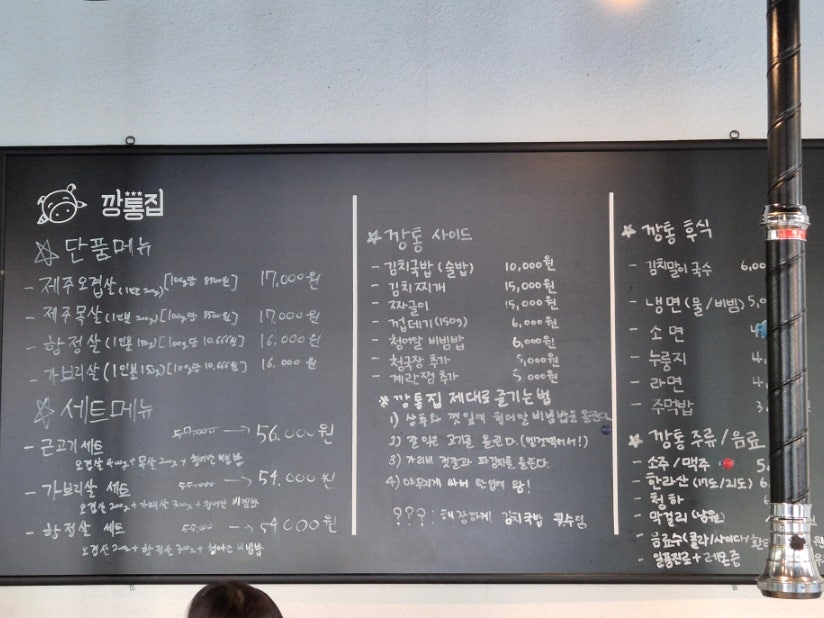 깡통집
단품메뉴
- 제주오겹살 (1인분 200g) [100g당 8500원] 17,000원
- 제주목살 (1인분 200g) [100g당 8500원] 17,000원
- 항정살 (1인분 150g) [100g당 10,666원] 16,000원
- 가브리살 (1인분 150g) [100g당 10,666원] 16,000원
세트메뉴
- 근고기세트 → 56,000원
오겹살 400g + 목살 200g + 청어알 비빔밥
- 가브리살 세트 → 54,000원
오겹살 200g + 가브리살 300g + 청어알 비빔밥
- 항정살 세트 → 54,000원
오겹살 200g + 항정살 300g + 청어알 비빔밥
깡통 사이드
- 김치국밥 (술밥) 10,000원
- 김치찌개 15,000원
- 짜글이 15,000원
- 껍데기 (150g) 6,000원
- 청어알 비빔밥 6,000원
- 청국장 추가 5,000원
- 계란찜 추가 5,000원
※ 깡통집 제대로 즐기는 법
1) 상추와 깻잎에 청어알 비빔밥을 올린다
2) 잘 익은 고기를 올린다.
3) 자리비 젓갈과 파김치를 올린다.
4) 야무지게 싸서 한입에 왕!
??? : 해장하게 김치국밥
깡통 후식
- 김치말이 국수 6,00
- 냉면 (물/비빔) 5,0
- 소면
- 누룽지 4,
- 라면 4,
- 주먹밥 3,
깡통 주류/음료
- 소주/맥주 5,
- 한라산 6
- 청하
- 막걸리
- 음료수 (콜라/사이다/환타
- 일품진로 + 레몬즙